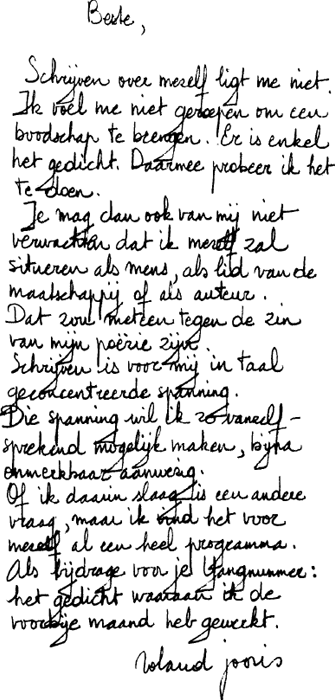 Beste,
Schrijven over mezelf ligt me niet.
Ik voel me niet geroepen om een
boodschap te brengen. Er is enkel
het gedicht. Daarmee probeer ik het
te doen.
Je mag dan ook van mij niet
verwachten dat ik mezelf zal
situeren als mens, als lid van de
maatschappij of als auteur.
Dat zou meteen tegen de zin
van mijn poëzie zijn.
Schrijven is voor mij in taal
geconcentreerde spanning.
Die spanning wil ik zo vanzelf-
sprekend mogelijk maken, bijna
onmerkbaar aanwezig.
Of ik daarin slaag, is een andere
vraag, maar ik vind het voor
mezelf al een heel programma.
Als bijdrage voor je Yangnummer:
het gedicht waaraan ik de
voorbije maand heb gewerkt.
roland jooris